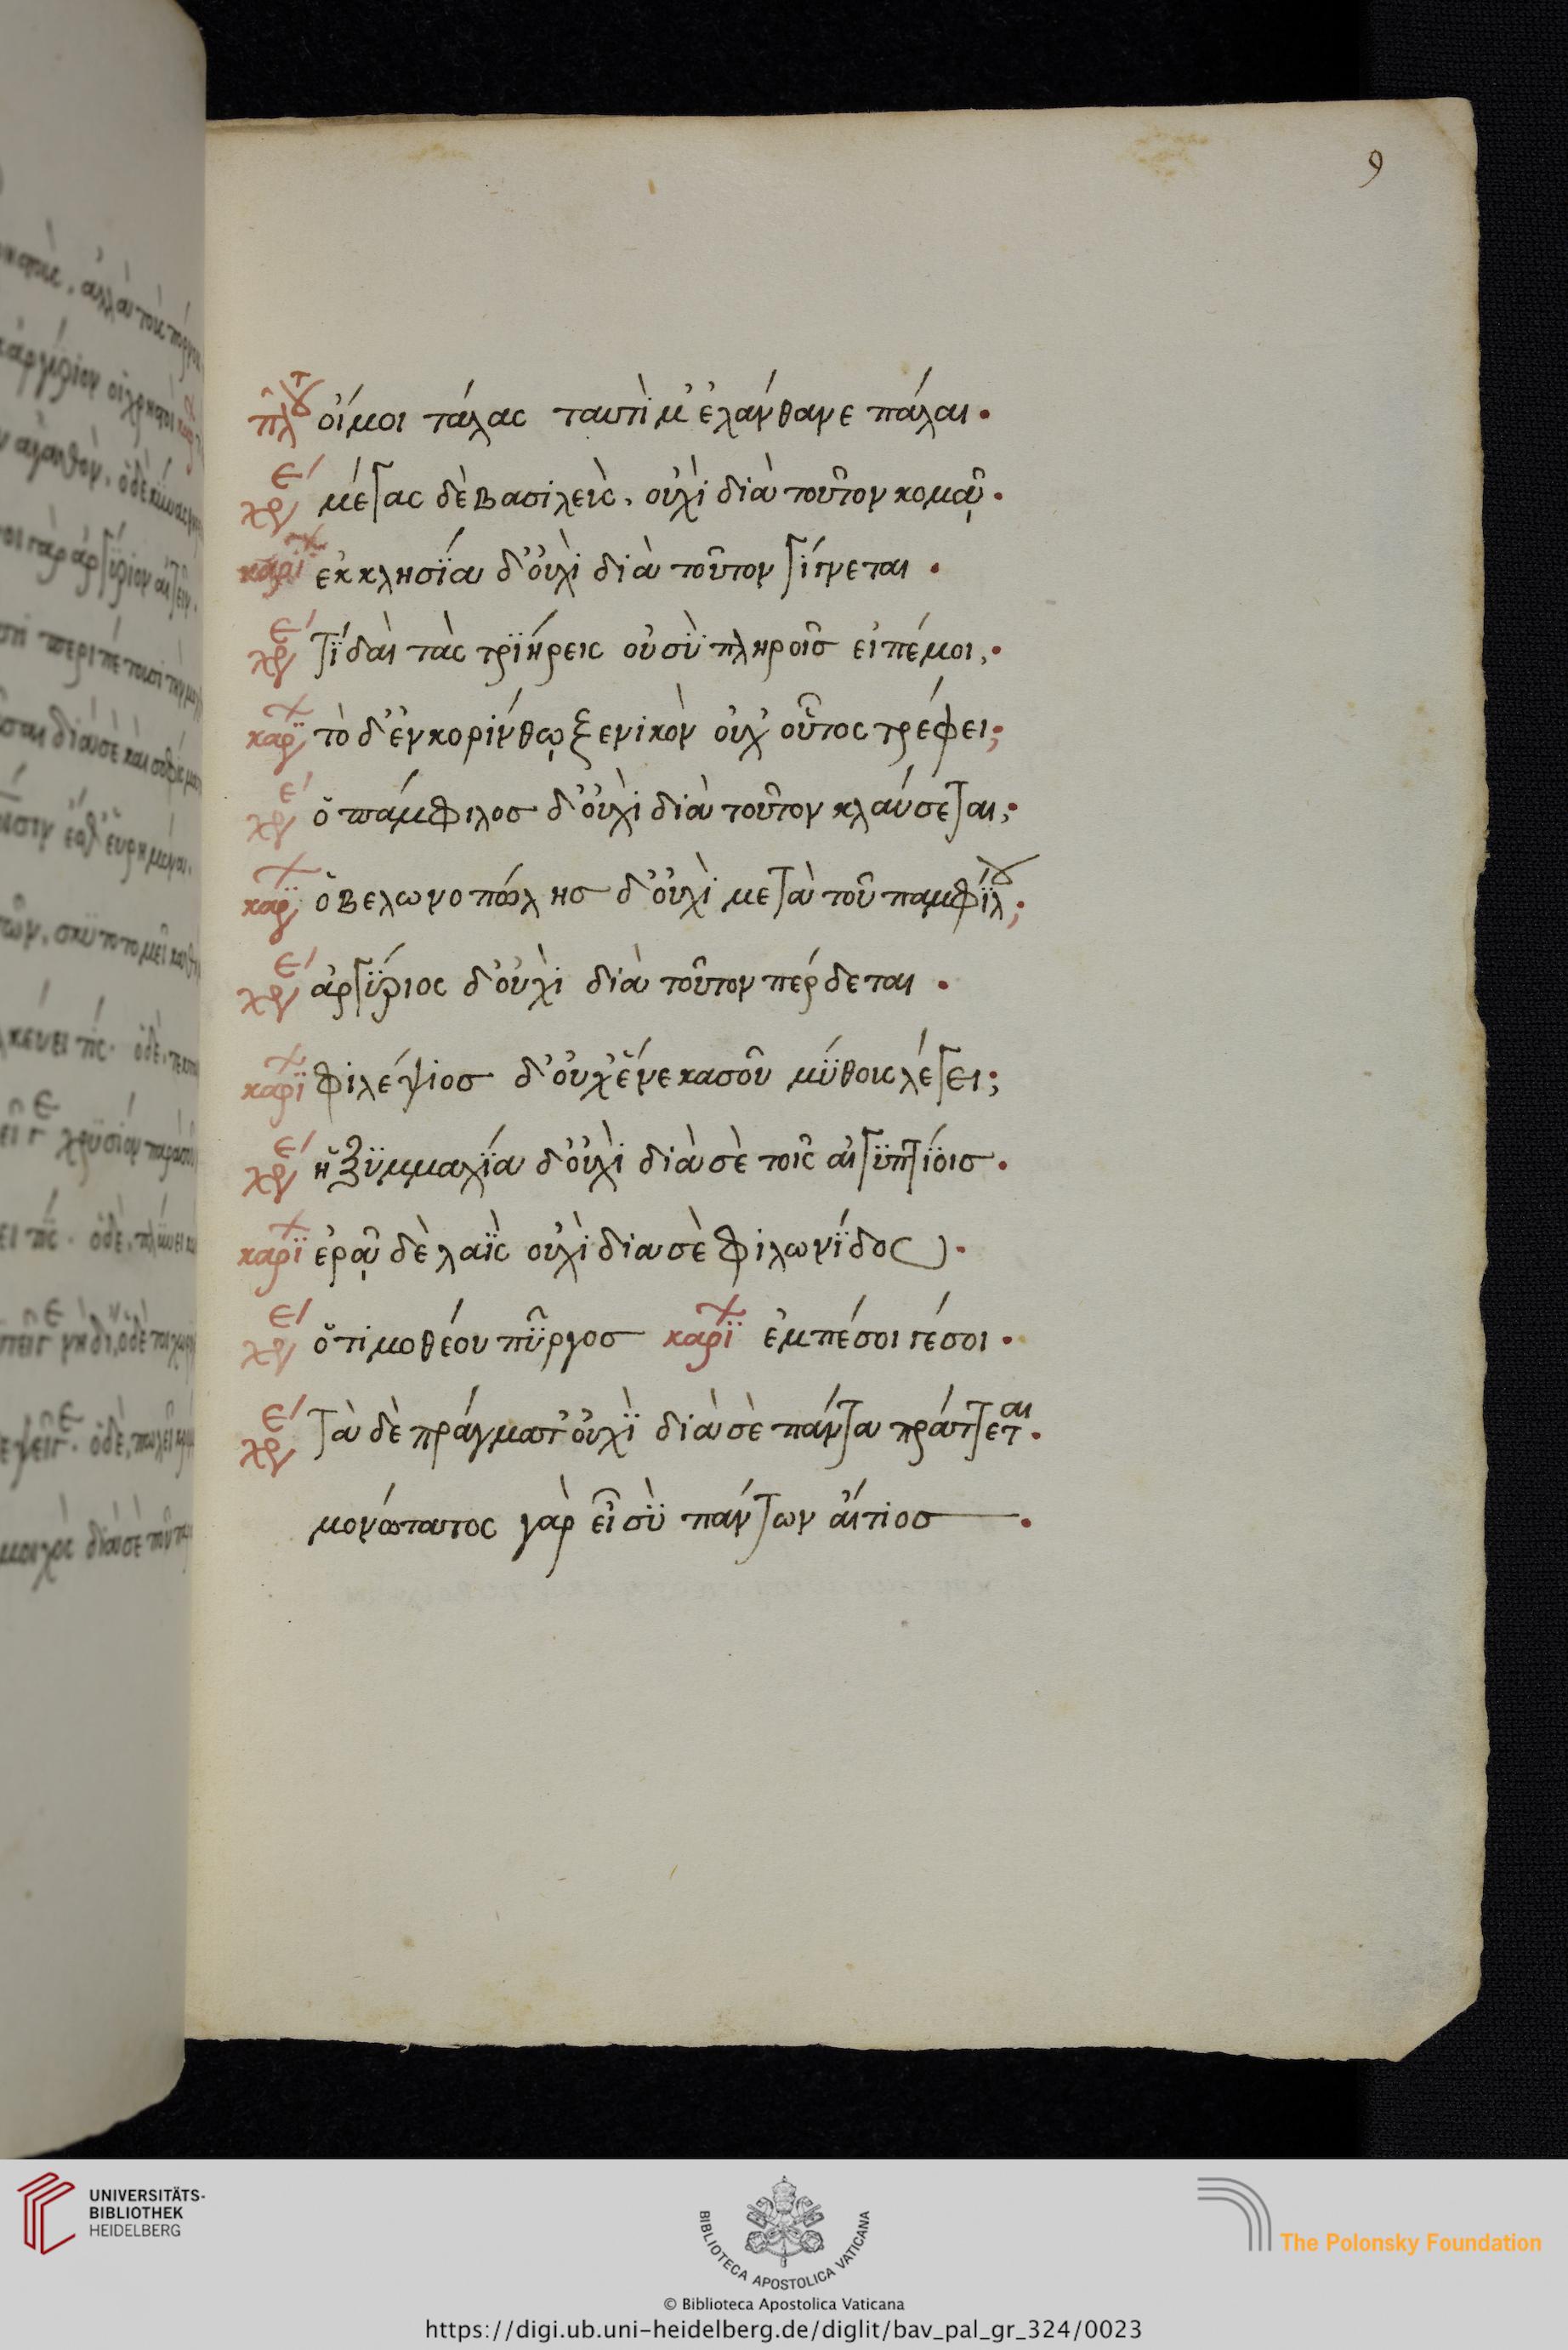 9
πλοῦτ οἴμοι τάλας ταυτὶ μ' ἐλάνθανε πάλαι.
χρε μέγας δὲ βασιλεὺς, οὐχὶ διὰ τοῦτον κομᾷ.
καρί ἐκκλησΐα δ' οὐχὶ διὰ τοῦτον γίγνεται.
χρε τΐ δαὶ τὰς τρϊήρεις οὐ σὺ πληροῖς εἰπέ μοι,.
καρί τὸ δ' ἐν κορίνθῳ ξενικὸν οὐχ' οὗτος τρέφει;
χρε ὁ πάμφιλος δ' οὐχὶ διὰ τοῦτον κλαύσεται;
καρϊ ὁ βελωνοπώλης δ' οὐχὶ μετὰ τοῦ παμφΐλου;
χρε ἀργΰριος δ' οὐχὶ διὰ τοῦτον πέρδεται.
καρϊ φιλέψιος δ' οὐχ' ἕνεκα σοῦ μΰθους λέγει;
χρε ἡ ξϋμμαχΐα δ' οὐχὶ διὰ σὲ τοῖς αἰγϋπτΐοις.
καρϊ ἐρᾷ δὲ λαῒς οὐχὶ δια σὲ φιλωνΐδου.
χρε ὁ τιμοθέου πῦργος καρϊ ἐμπέσοι γέ σοι.
χρε τὰ δὲ πράγματ' οὐχῒ διὰ σὲ πάντα πράττεται.
μονώτατος γὰρ εἶ σὺ πάντων αἴτιος.
UNIVERSITÄTS-
BIBLIOTHEK
HEIDELBERG
BIBLIOTECA APOSTOLICA VATICANA
The Polonsky Foundation
© Biblioteca Apostolica Vaticana
https://digi.ub.uni-heidelberg.de/diglit/bav_pal_gr_324/0023